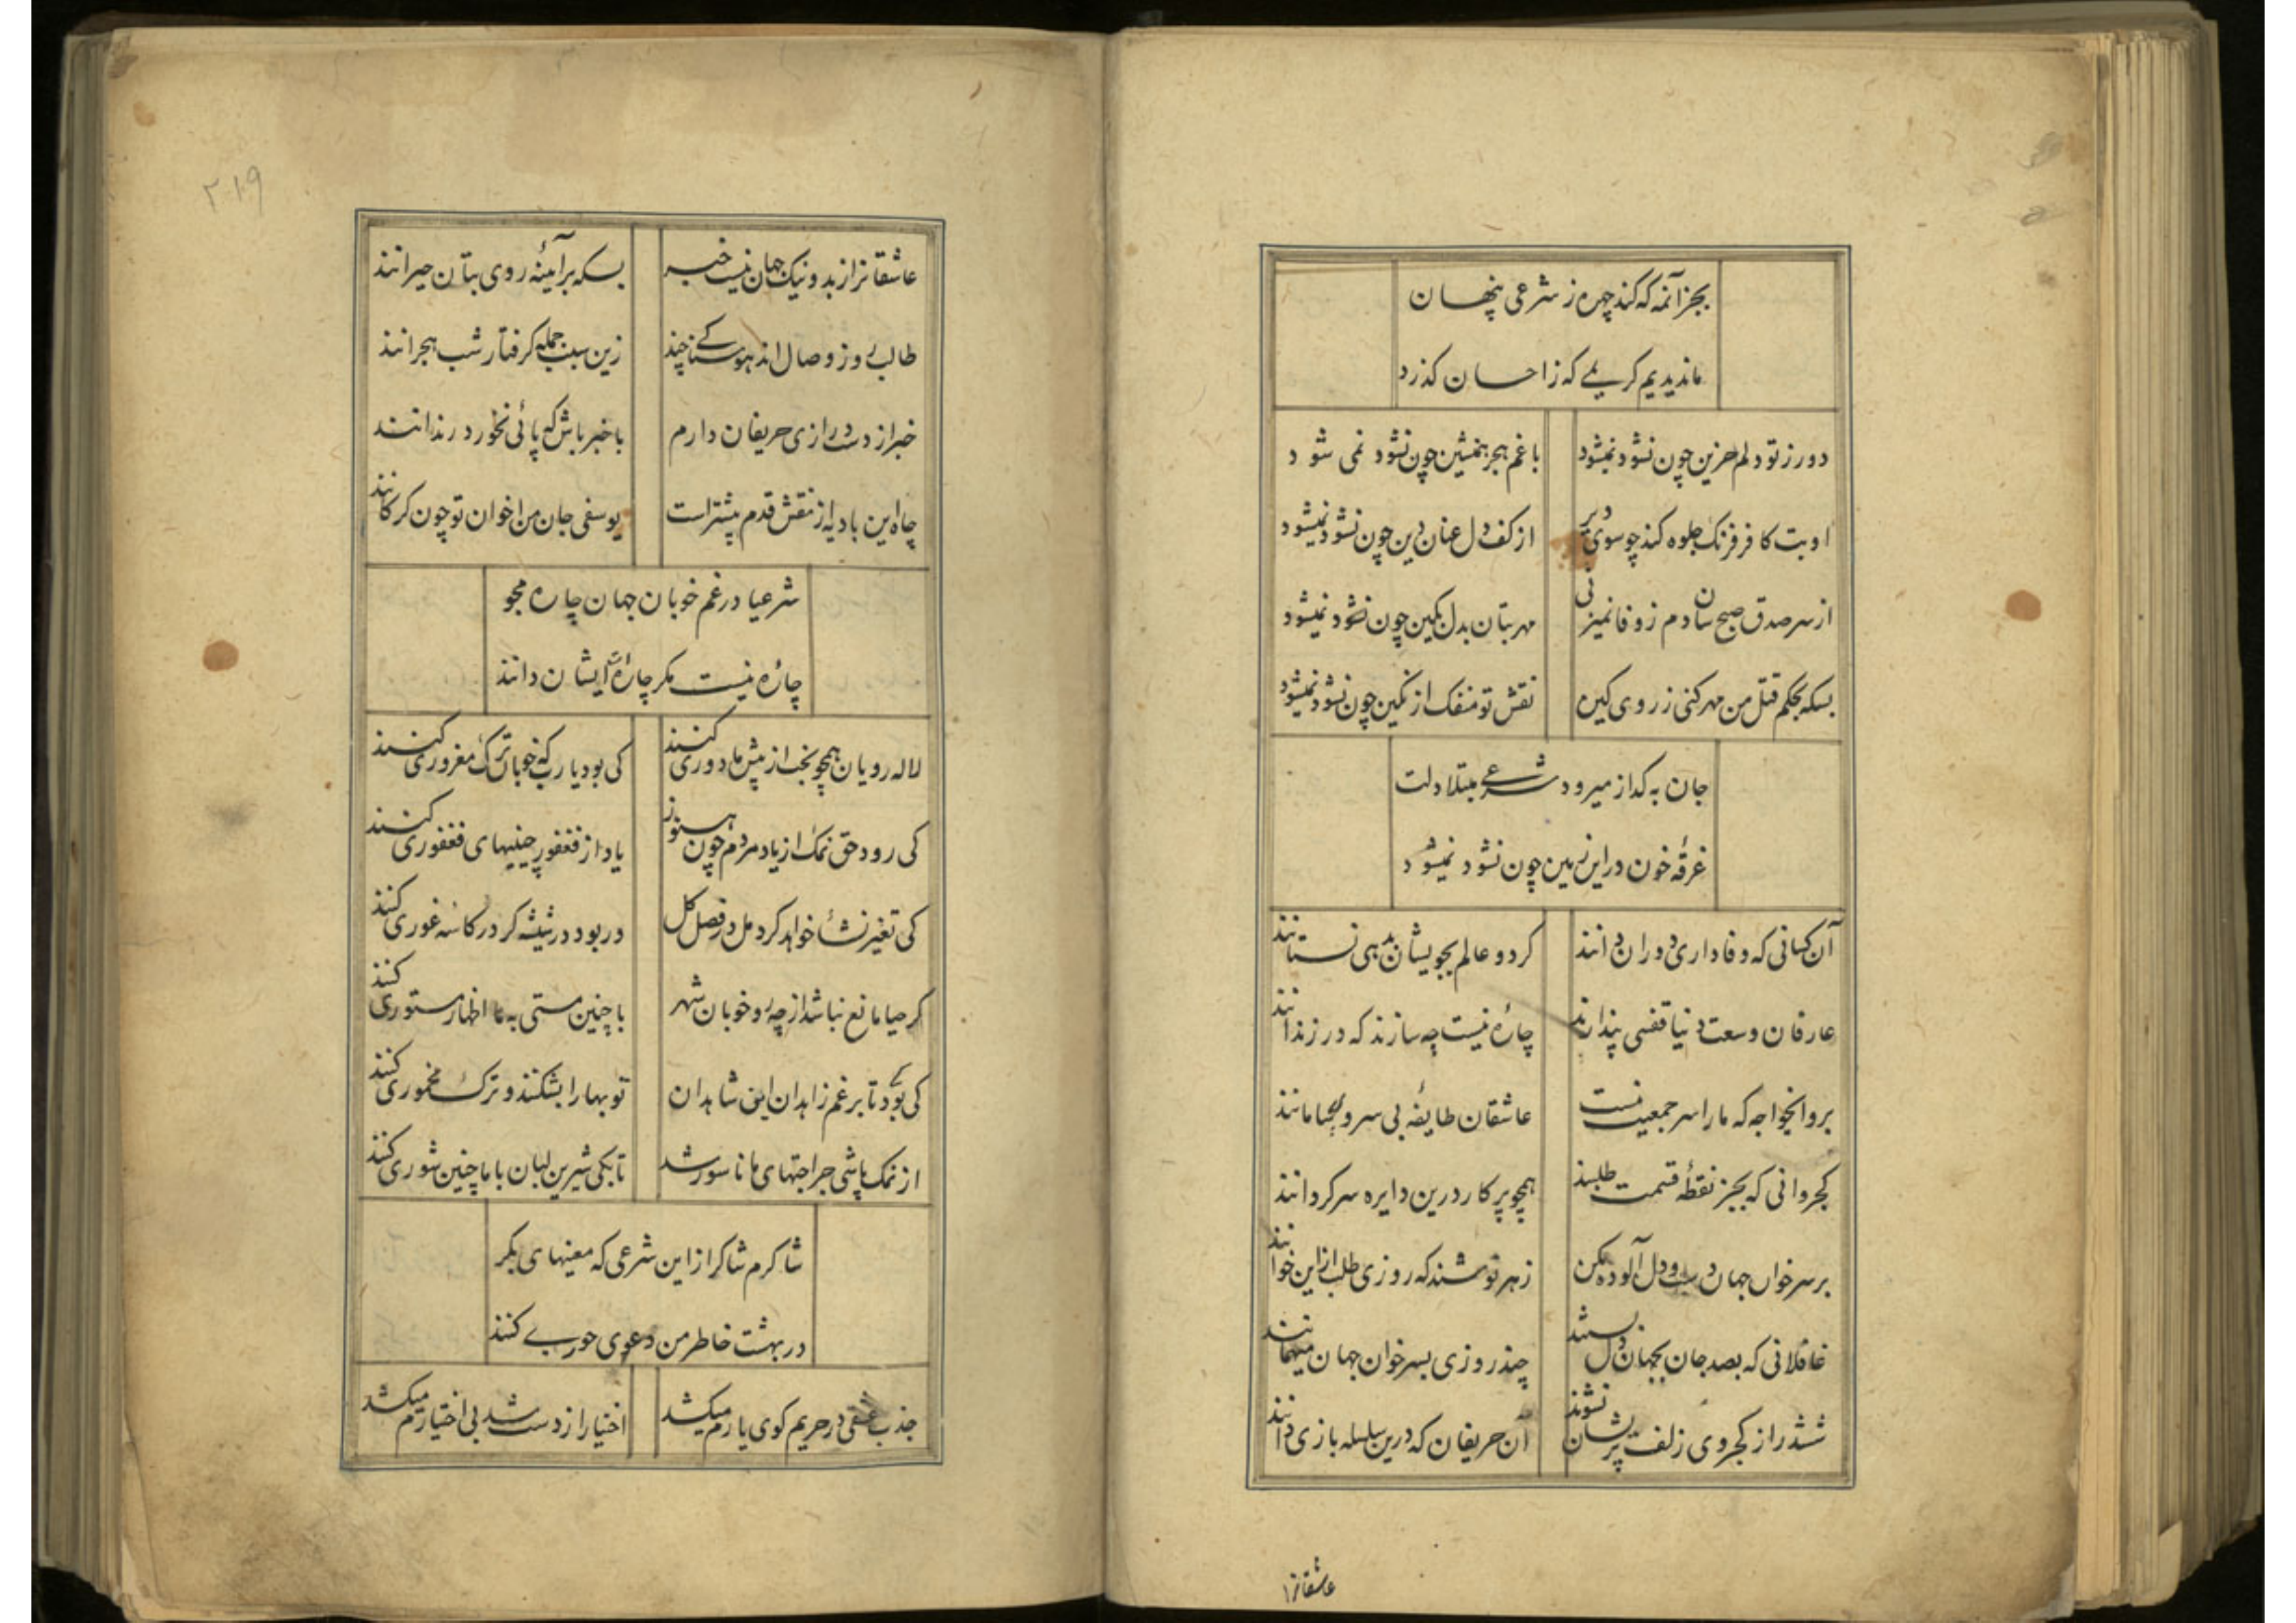 بجز آنمه که کند چهره ز شرعی پنهان
ماندیدیم کریمے که ز احسان کذرد
دور ز تو دلم حزین چون نشود نمیشود
با غم هجر همنشین چون نشود نمی شود
او بت کافر فرنک جلوه کند چو سوی دیر
از کف دل عنان دین چون نشود نمیشود
از سر صدق صبح سان دم ز وفا نمیزنی
مهر بتان بدل مکین چون نشود نمیشود
بسکه بحکم قتل من مهر کنی ز روی کین
نقش تو منفک از نکین چون نشود نمیشود
جان به کداز میرود شرعے مبتلا دلت
غرقهٔ خون در این زمین چون نشود نمیشود
آن کسانی که وفاداری دوران دانند
کر دو عالم بجویشان بدهی نستانند
عارفان وسعت دنیا قفسی پندارند
چارهٔ نیست چه سازند که در زندانند
برو ایخواجه که ما را سر جمعیت نیست
عاشقان طایفهٔ بی سر و بیسامانند
کجروانی که بجز نقطهٔ قسمت طلبند
همچو پرکار درین دایره سرکردانند
بر سر خوان جهان دست و دل آلوده مکن
زهر نوشند که روزی طلب از این خوانند
غافلانی که بصد جان بجهان دل بستند
چند روزی بسر خوان جهان میهمانند
ششدر از کجروی زلف پریشان نشوند
آن حریفان که درین سلسله بازی دانند
عاشقانرا
٢١٩
عاشقانرا از بد و نیک جهان نیست خبر
بسکه بر آئینهٔ روی بتان حیرانند
طالب روز وصال اند هوسناکے چند
زین سبب جمله کرفتار شب هجرانند
خبر از دست درازی حریفان دارم
با خبر باش که پائی نخورد رندانند
چاه این بادیه از نقش قدم پیشتر است
یوسفی جان من اخوان تو چون کرکانند
شرعیا در غم خوبان جهان چاره مجو
چارهٔ نیست مکر چارهٔ ایشان دانند
لاله رویان همچو بخت از پیش ما دوری کنند
کی بود یا رب که خوبان ترک مغروری کنند
کی رود حق نمک از یاد مردم چون هنوز
یاد از فغفور چینیهای فغفوری کنند
کی تغیر نشأ خواهد کرد مل در فصل کل
در بود در شیشه کر در کاسه غوری کنند
کر حیا مانع نباشد از چه رو خوبان شهر
با چنین مستی به ما اظهار مستوری کنند
کی بود تا بر غم زاهدان این شاهدان
توبها را بشکنند و ترک مخموری کنند
از نمک پاشی جراحتهای ما ناسور شد
تا بکی شیرین لبان با ما چنین شوری کنند
شاکرم شاکر از این شرعی که معنیهای بکر
در بهشت خاطر من دعوی حورے کنند
جذب عشقی در حریم کوی یارم میکشد
اختیار از دست شد بی اختیارم میکشد